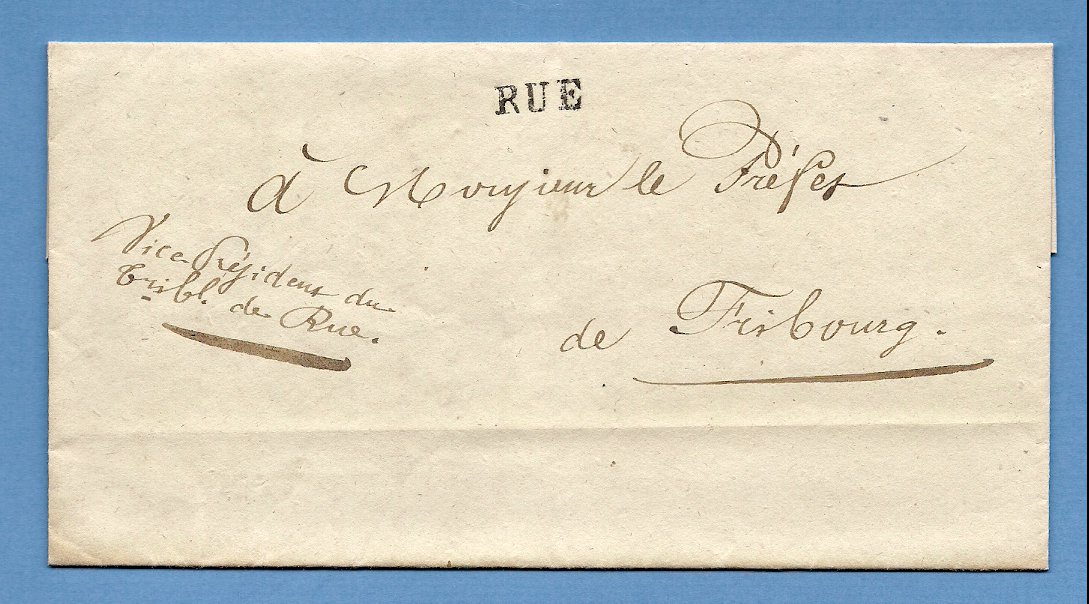 RUE
à Monsieur le Préfet
Vice Président du
Tribl. de Rue.
de Fribourg.